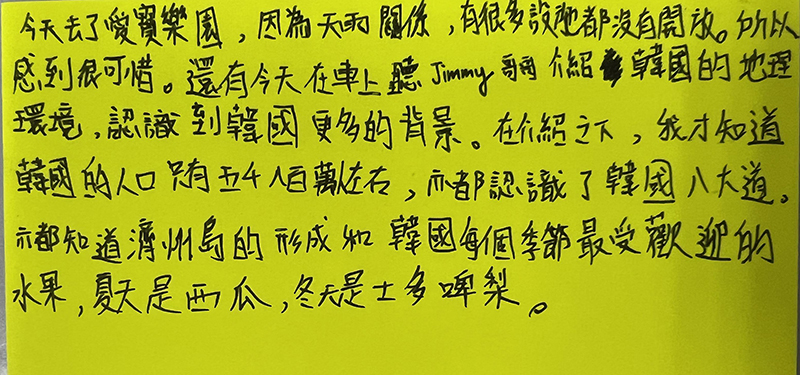 今天去了愛寶樂園，因為天雨關係，有很多設施都沒有開放。所以
感到很可惜。還有今天在車上聽Jimmy哥哥介紹韓國的地理
環境，認識到韓國更多的背景。在介紹之下，我才知道
韓國的人口只有五千八百萬左右，亦都認識了韓國八大道。
亦都知道濟州島的形成和韓國每個季節最受歡迎的
水果，夏天是西瓜，冬天是士多啤梨。